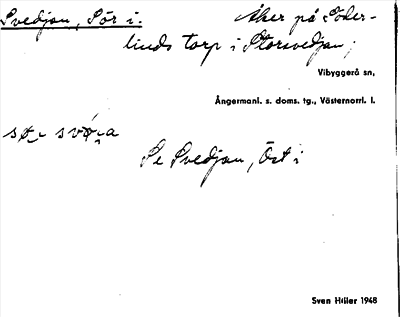 Svedjan, Sör i. Åker på Söder-
linds torp i Storsvedjan;
Vibyggerå sn,
Ångermanl. s. doms. tg., Västernorrl. l.
Se Svedjan, Öst i
Sven Hiller 1948